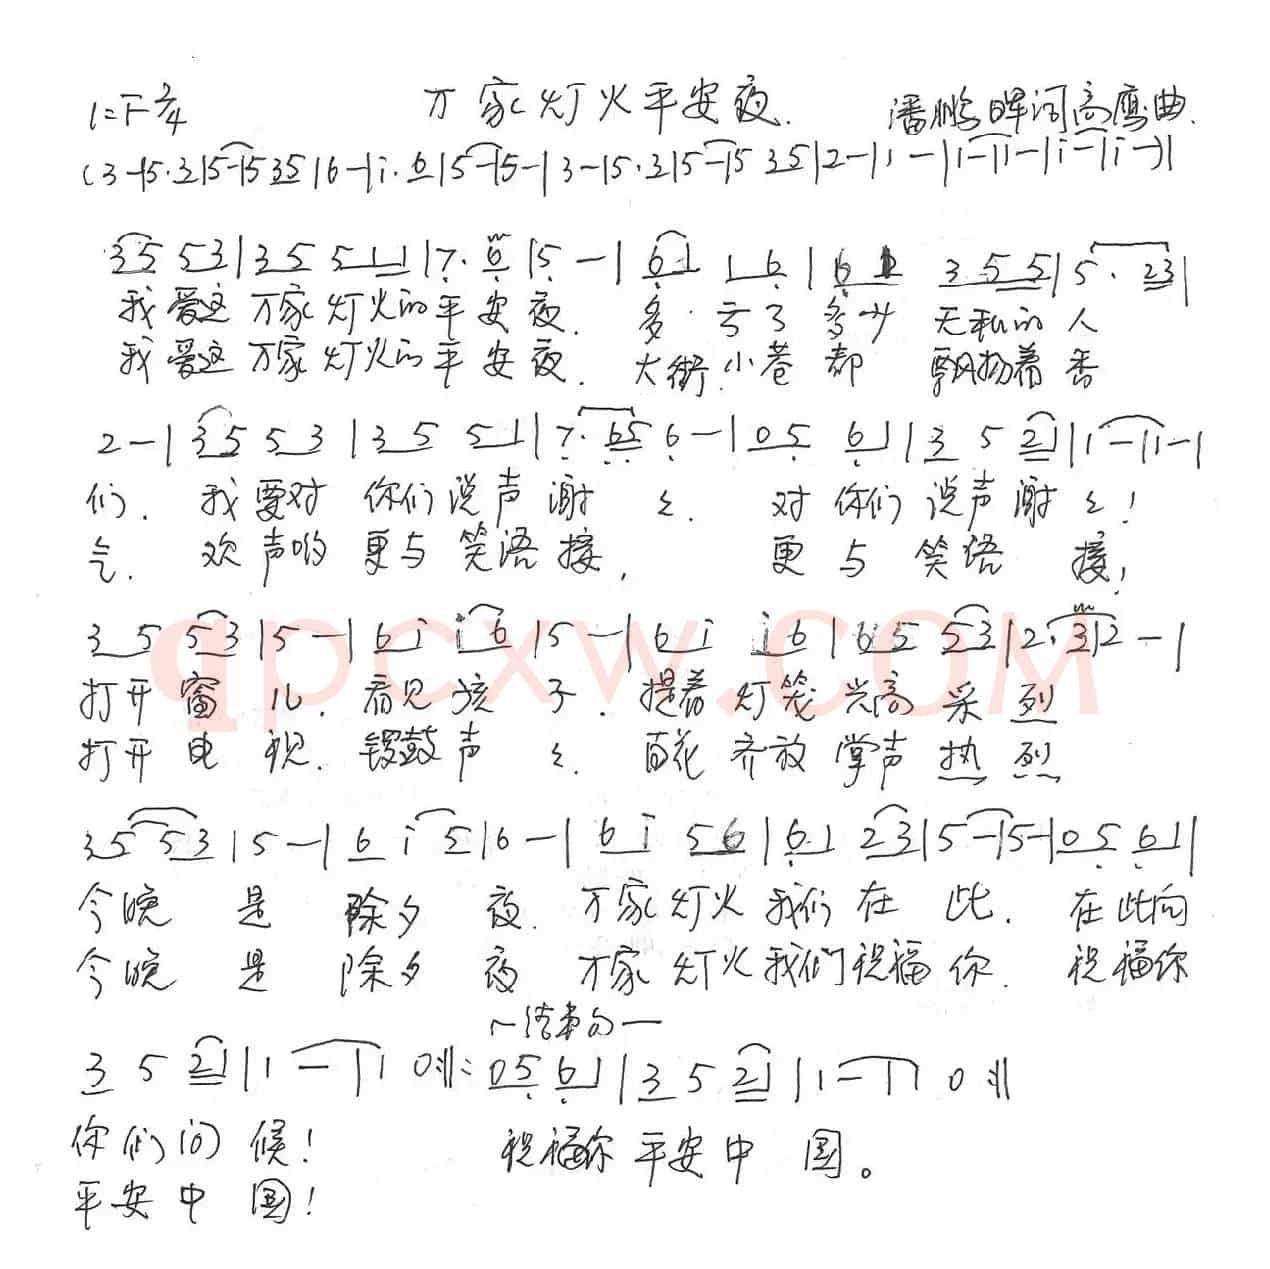 1=F 2/4 万家灯火平安夜. 潘鹏晖词高鹰曲.
(3-|5·3|5-|5 35|6-|i·6|5-|5-|3-|5·3|5-|5 35|2-|1-|1-|1-|i-|i-)|
35 53|35 511|7·6|5-|61 16|61 355|5·23|
我爱这万家灯火的平安夜. 多亏了多少无私的人
我爱这万家灯火的平安夜. 大街小巷都飘扬着香
2-|35 53|35 51|7·65|6-|05 61|3 5 21|1-|1-|
们. 我要对你们说声谢々. 对你们说声谢々!
气. 欢声哟更与笑语接, 更与笑语接,
35 53|5-|6i i6|5-|6i i6|65 53|2·3|2-|
qpcxw.com
打开窗儿. 看见孩子. 提着灯笼兴高采烈
打开电视. 锣鼓声々. 百花齐放掌声热烈
35 53|5-|6 i 5|6-|6i 56|61 23|5-|5-|05 61|
今晚是除夕夜. 万家灯火我们在此. 在此向
今晚是除夕夜 万家灯火我们祝福你. 祝福你
结束句
3 5 21|1-|1 0:‖: 05 61|3 5 21|1-|1 0:‖
你们问候! 祝福你平安中国。
平安中国!